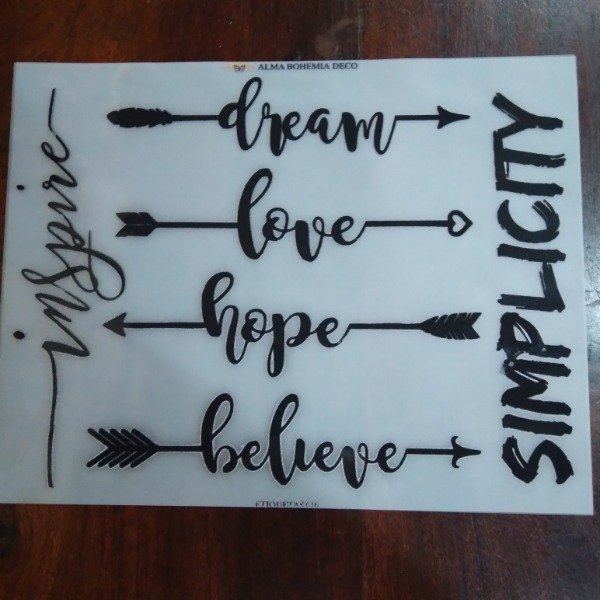 ALMA BOHEMIA DECO
inspire
dream
love
hope
believe
SIMPLICITY